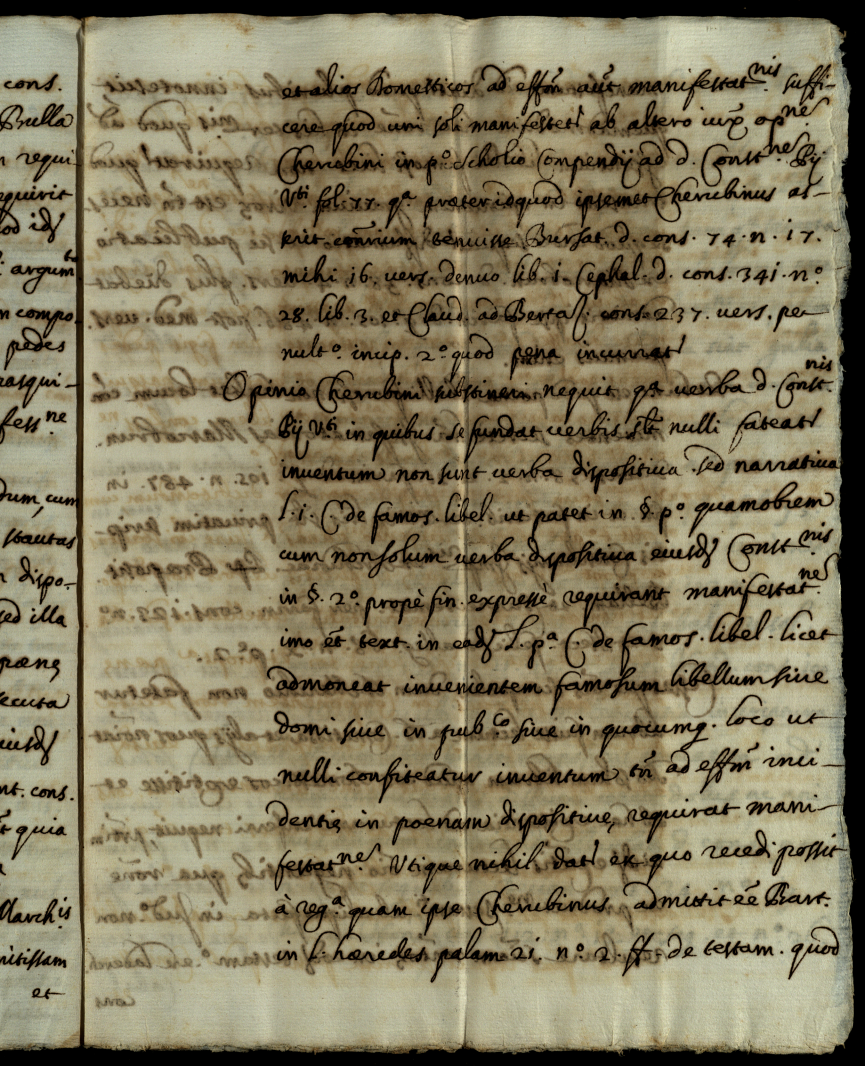 cons.
Bulla
requi-
quirit
od idẽ
argumto
compo-
pedes
asqui-
fessne
dum, cum
stantas
dispo-
sed illa
pœnę
secuta
eiusdẽ
nt. cons.
t quia
Marchis
nitissam
et
et alios Domesticos ad effm̃ aũt manifestatnis suffi-
cere quod uni soli manifestetr ab altero iuxa opnẽ
Cherubini in po. Scholio Compendij ad d. Constnẽ Pij
Vti. fol. 77. qa. præter id quod ipsemet Cherubinus as-
serit conr̃ium tenuisse Bursat. d. cons. 74. n. 17.
mihi 16. vers. denuo lib. 1. Cephal. d. cons. 341. no.
28. lib. 3. et Claud. ad Bertaz. cons. 237. vers. pe-
nulto. incip. 2o. quod pena incurratr
Opinio Cherubini substineri nequit qa verba d. Constnis
Pij Vti. in quibus se fundat verbis slt nulli fateatr
inventum non sunt verba dispositiva sed narrativa
L. i. C. de famos. libel. ut patet in §. po. quamobrem
cum non solum verba dispositiva eiusdẽ Constnis
in §. 2o. propè fin. expressè requirant manifestatnẽ
imo et̃ text. in eadẽ L. pa. C. de famos. libel. licet
admoneat invenientem famosum libellum sive
domi sive in pubco sive in quocumq. loco ut
nulli confiteatur inventum tñ ad effm̃ inci-
dentię in poenam dispositivę requirat mani-
festatnẽ. Utique nihil datr ex quo recedi possit
à rega. quam ipse Cherubinus admittit eẽ Bart.
in L. hæredes palam 21. no. 2. ff. de testam. quod
cons